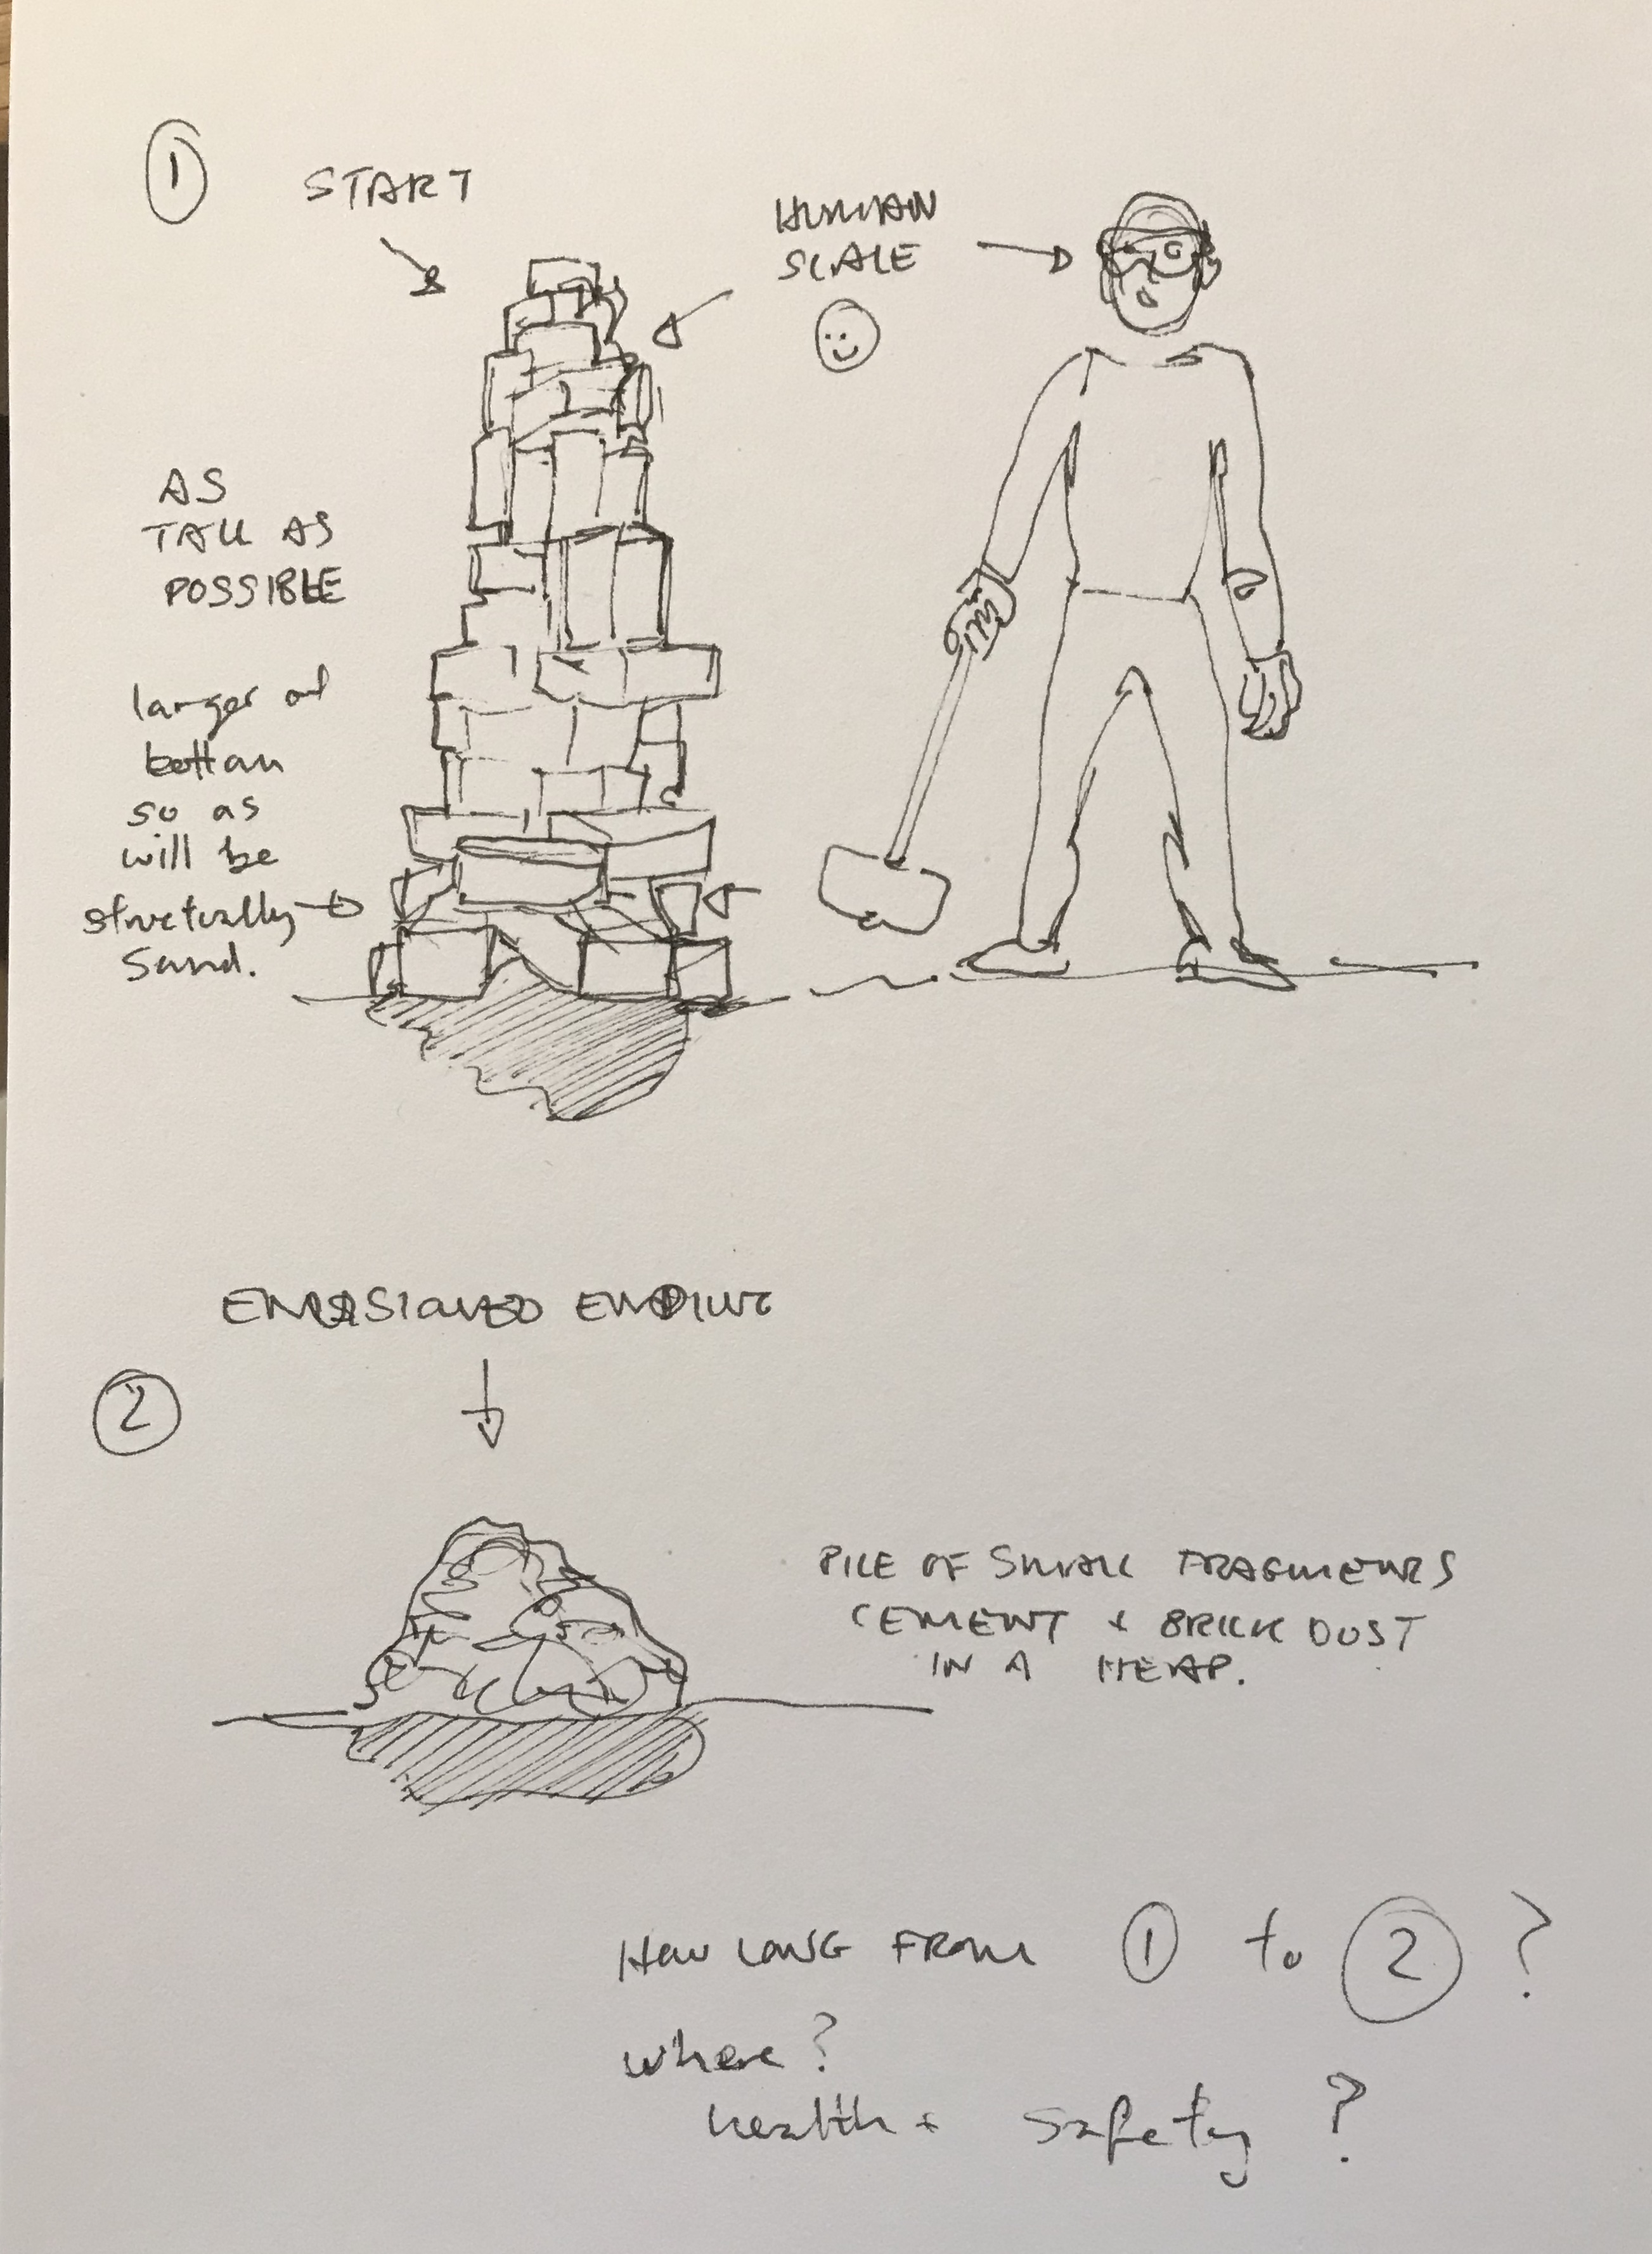 1
START
HUMAN
SCALE
AS
TALL AS
POSSIBLE
larger at
bottom
so as
will be
structurally
sand.
ENVISIONED ENDING
2
PILE OF SMALL FRAGMENTS
CEMENT + BRICK DUST
IN A HEAP.
HOW LONG FROM 1 to 2 ?
where?
health + safety ?